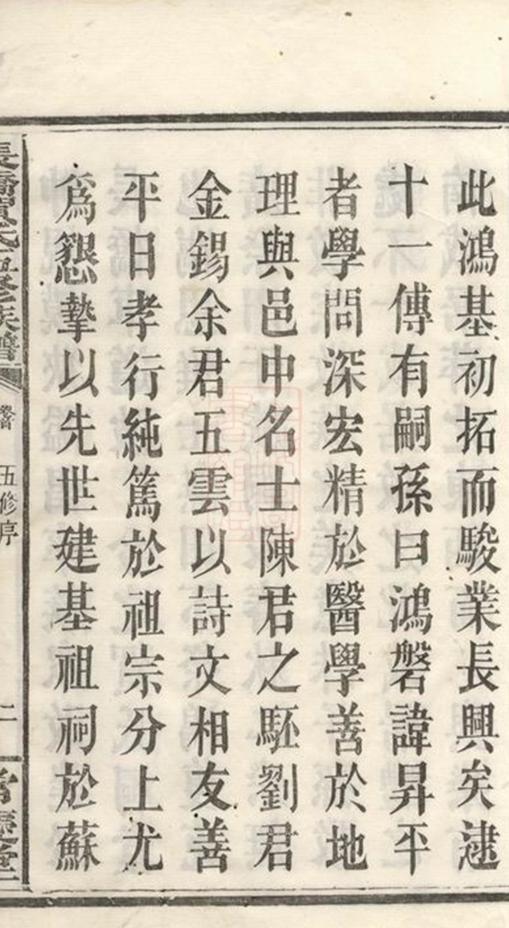 此鴻基初拓而駿業長興矣逮
十一傳有嗣孫曰鴻磐諱昇平
者學問深宏精於醫學善於地
理與邑中名士陳君之駓劉君
金錫余君五雲以詩文相友善
平日孝行純篤於祖宗分上尤
爲懇摯以先世建基祖祠於蘇
長橋賀氏五修族譜
五修序
二